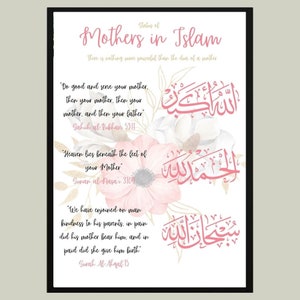 Status of
Mothers in Islam
There is nothing more powerful than the dua of a mother
"Do good and serve your mother,
then your mother, then your
mother, and then your father"
Sahih al-Bukhari 5971
الله أكبر
"Heaven lies beneath the feet of
your Mother"
Sunan al-Nasa'i 3104
الحمد لله
"We have enjoined on man
kindness to his parents, in pain
did his mother bear him, and in
paid did she give him birth"
Surah Al-Ahqaf:15
سبحان الله